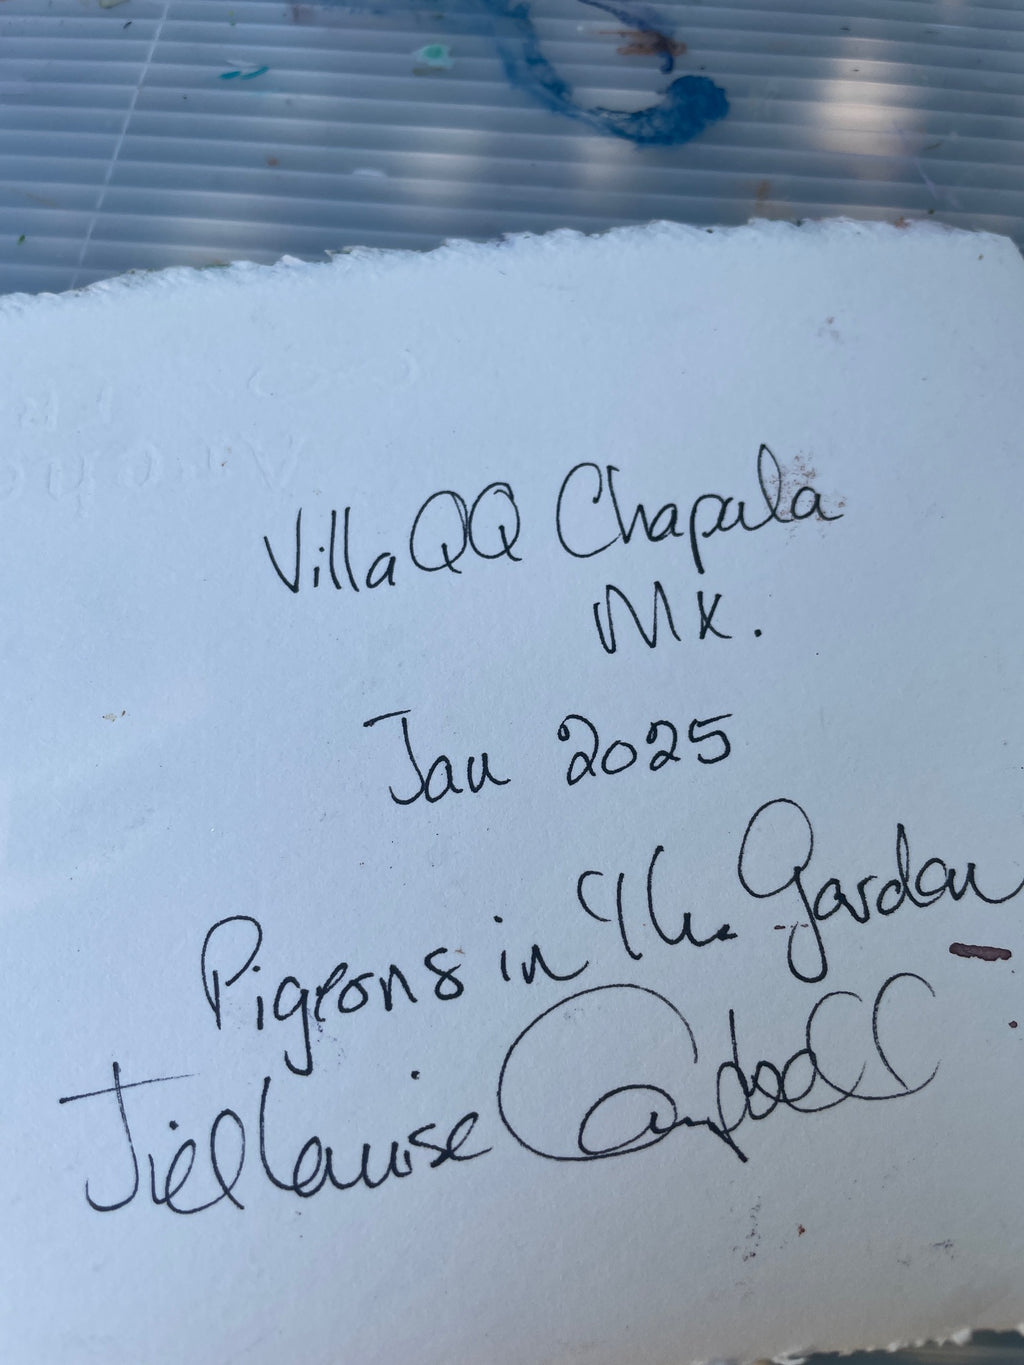 Villa QQ Chapala
MX.
Jan 2025
Pigeons in The Garden
Jill Louise Campbell